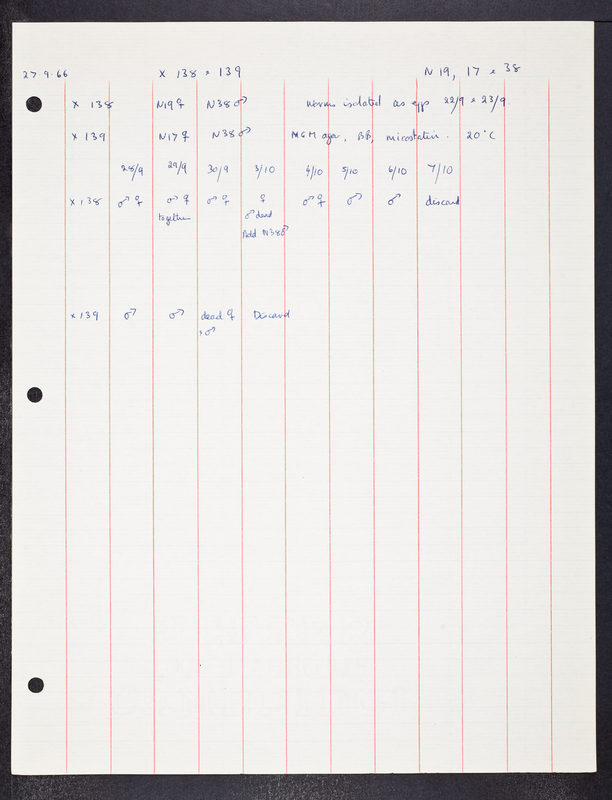 27.9.66 X 138 & 139 N 19, 17 & 38
X 138 N19♀ N38♂ Worms isolated as eggs 22/9 & 23/9
X 139 N17♀ N38♂ MGM agar, BB, micostatin. 20°C
28/9 29/9 30/9 3/10 4/10 5/10 6/10 7/10
X 138 ♂ ♀ ♂ ♀ ♂ ♀ ♀ ♂ ♀ ♂ ♂ discard
together ♂ dead
Add N38♂
X 139 ♂ ♂ dead ♀ Discard
♂